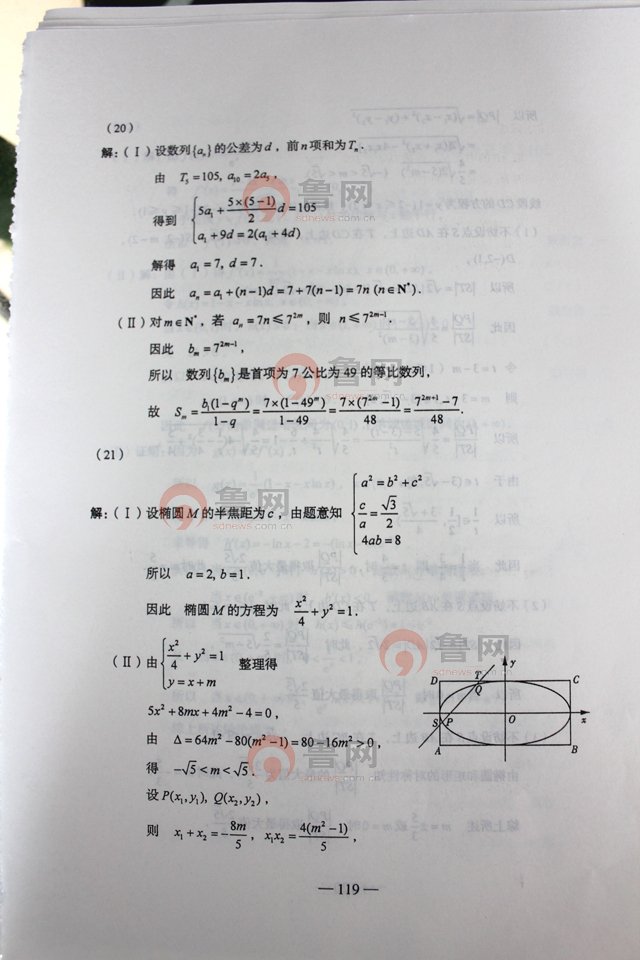 (20)
解:(Ⅰ)设数列{aₙ}的公差为d,前n项和为Tₙ.
由 T₅=105, a₁₀=2a₅,
得到 { 5a₁+5×(5-1)/2 d=105
a₁+9d=2(a₁+4d)
解得 a₁=7, d=7.
因此 aₙ=a₁+(n-1)d=7+7(n-1)=7n (n∈N*).
(Ⅱ)对m∈N*,若 aₙ=7n≤7²ᵐ,则 n≤7²ᵐ⁻¹.
因此 bₘ=7²ᵐ⁻¹,
所以 数列{bₘ}是首项为7公比为49的等比数列,
故 Sₘ=b₁(1-qᵐ)/(1-q)=7×(1-49ᵐ)/(1-49)=7×(7²ᵐ-1)/48=(7²ᵐ⁺¹-7)/48.
(21)
解:(Ⅰ)设椭圆M的半焦距为c,由题意知 { a²=b²+c²
c/a=√3/2
4ab=8
所以 a=2, b=1.
因此 椭圆M的方程为 x²/4+y²=1.
(Ⅱ)由 { x²/4+y²=1
y=x+m 整理得
5x²+8mx+4m²-4=0,
由 Δ=64m²-80(m²-1)=80-16m²>0,
得 -√5<m<√5.
设P(x₁,y₁), Q(x₂,y₂),
则 x₁+x₂=-8m/5, x₁x₂=4(m²-1)/5,
y
D T C
Q
S P O x
A B
—119—
鲁网
sdnews.com.cn
鲁网
sdnews.com.cn
鲁网
sdnews.com.cn
鲁网
sdnews.com.cn
鲁网
sdnews.com.cn